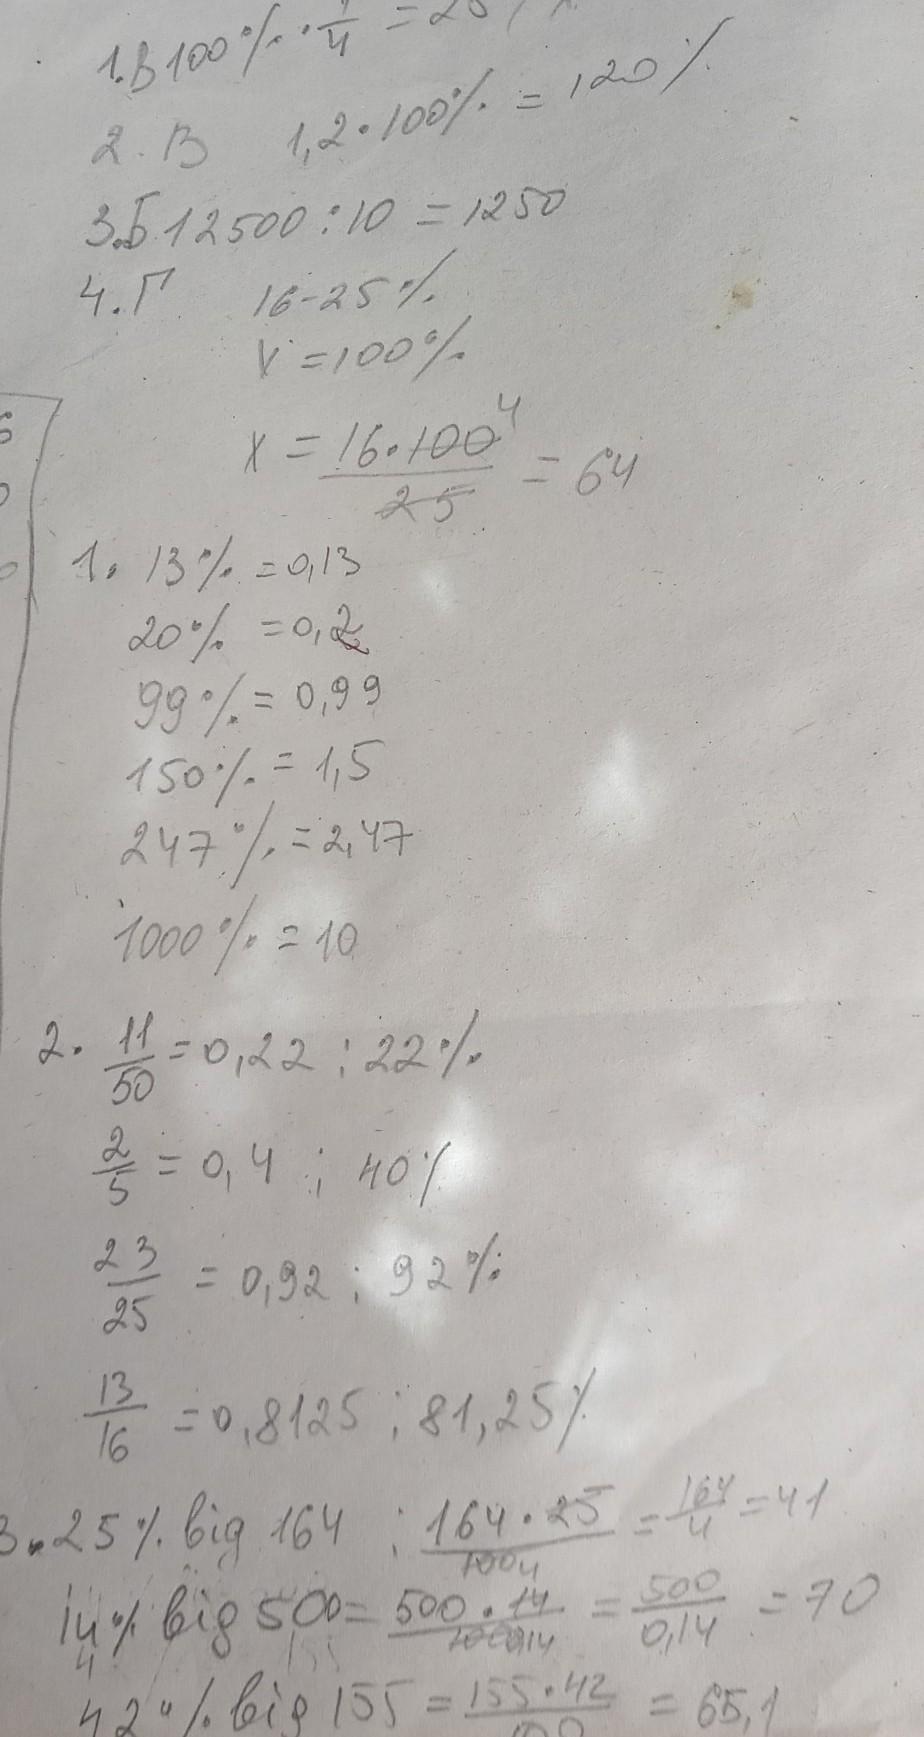 1. В 100% · 1/4 = 25%
2. В 1,2 · 100% = 120%
3. Б 12500 : 10 = 1250
4. Г 16 - 25%
x = 100%
x = 16 · 100 4 / 25 = 64
1. 13% = 0,13
20% = 0,2
99% = 0,99
150% = 1,5
247% = 2,47
1000% = 10
2. 11/50 = 0,22 ; 22%
2/5 = 0,4 ; 40%
23/25 = 0,92 ; 92%
13/16 = 0,8125 ; 81,25%
3. 25% від 164 ; 164 · 25 / 100 4 = 164/4 = 41
14% від 500 = 500 · 14 / 100 0,14 = 500/0,14 = 70
42% від 155 = 155 · 42 / 100 = 65,1